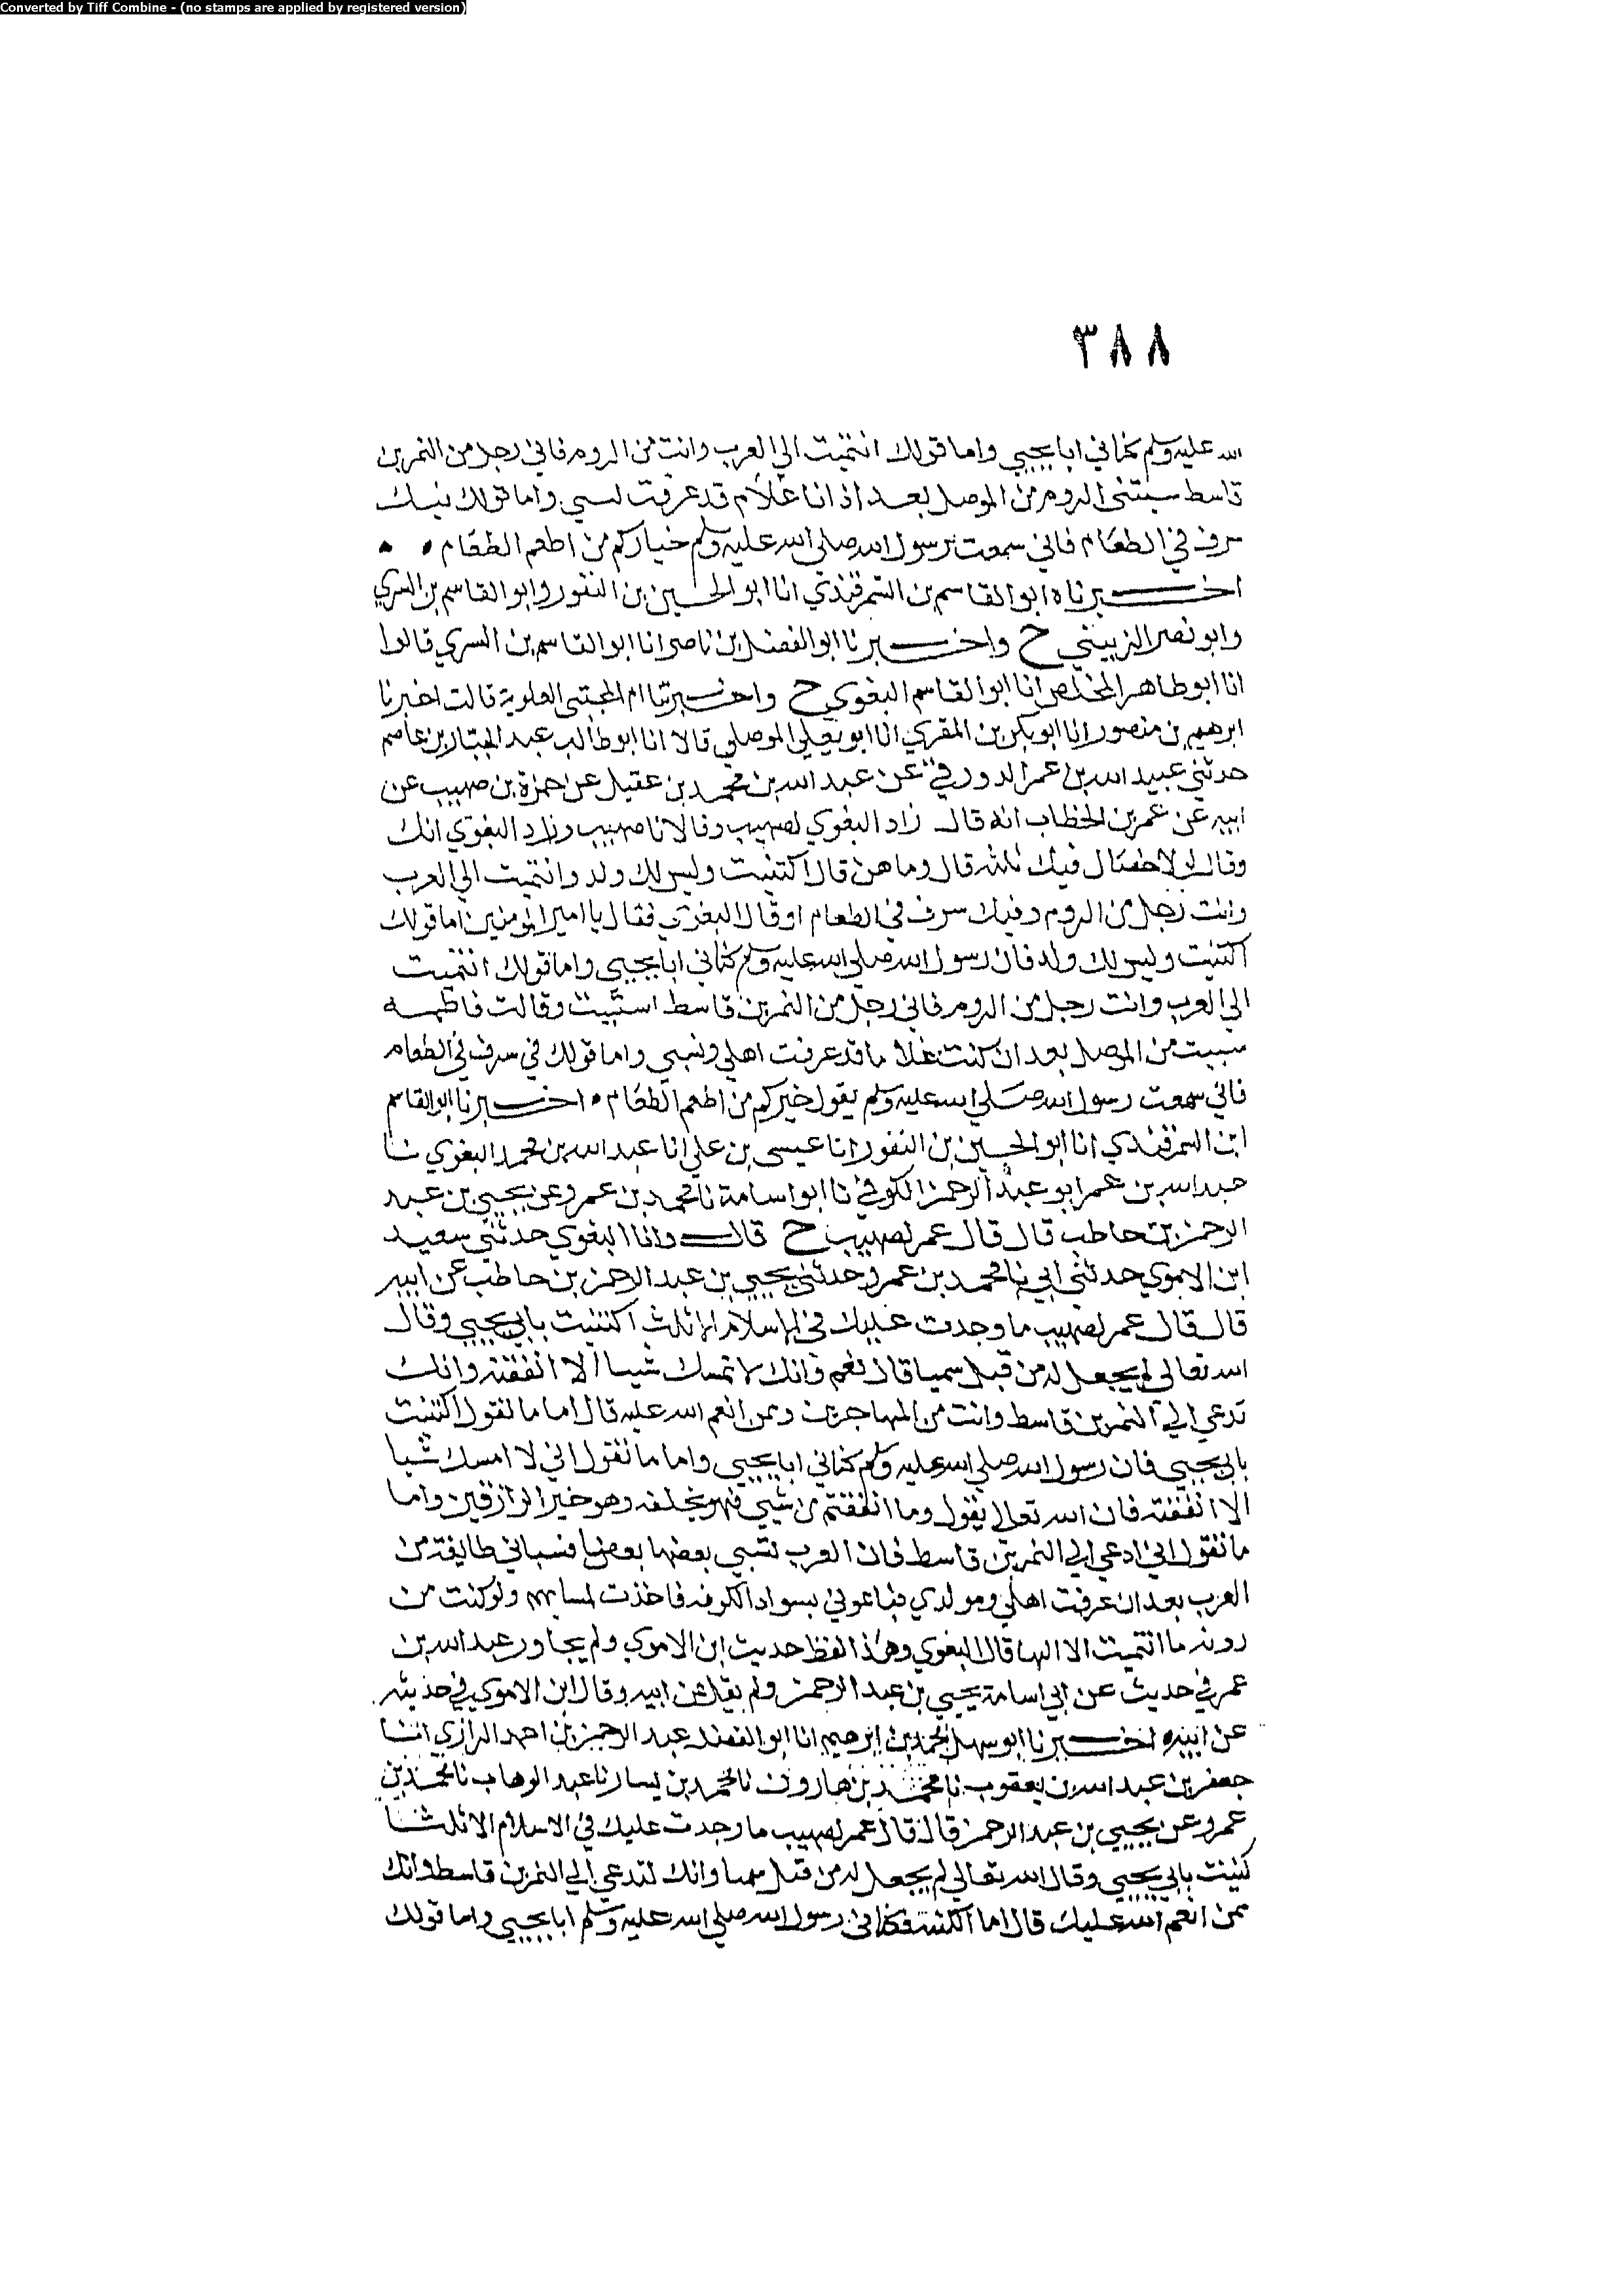 Converted by Tiff Combine - (no stamps are applied by registered version)
٣٨٨
الله عليه وسلم كناني ابا يحيي واما قولك انتميت الي العرب وانت من الروم فاني رجل من النمر بن
قاسط سبتني الروم من الموصل بعد اذ انا غلام قد عرفت نسبي واما قولك فيك
سرف في الطعام فاني سمعت رسول الله صلي الله عليه وسلم خياركم من اطعم الطعام
اخبرناه ابو القاسم بن السمرقندي انا ابو الحسين بن النقور وابو القاسم بن البسري
وابو نصر الزينبي ح واخبرنا ابو الفضل بن ناصر انا ابو القاسم بن البسري قالوا
انا ابو طاهر المخلص انا ابو القاسم البغوي ح واخبرتنا ام المجتبى العلوية قالت اخبرنا
ابرهيم بن منصور انا ابو بكر بن المقري انا ابو يعلي الموصلي قالا انا ابو طالب عبد الجبار بن عاصم
حدثني عبيد الله بن عمر الدورقي عن عبد الله بن محمد بن عقيل عن حمزة بن صهيب عن
ابيه عن عمر بن الخطاب انه قال زاد البغوي لصهيب وقالا نا صهيب وزاد البغوي انك
وقال لولا خصال فيك ثلثه قال وما هن قال اكتنيت وليس لك ولد وانتميت الي العرب
وانت رجل من الروم وفيك سرف في الطعام او قال البغوي فقال يا امير المومنين اما قولك
اكتنيت وليس لك ولد فان رسول الله صلي الله عليه وسلم كناني ابا يحيي واما قولك انتميت
الي العرب وانت رجل من الروم فاني رجل من النمر بن قاسط استبيت وقالت فاطمه
سبيت من الموصل بعد ان كنت غلاما قد عرفت اهلي ونسبي واما قولك في سرف في الطعام
فاني سمعت رسول الله صلي الله عليه وسلم يقول خيركم من اطعم الطعام اخبرنا ابو القاسم
ابن السمرقندي انا ابو الحسين بن النقور انا عيسى بن علي انا عبد الله بن محمد البغوي نا
عبد الله بن عمر ابو عبد الرحمن الكوفي نا ابو اسامة نا محمد بن عمرو عن يحيي بن عبد
الرحمن بن حاطب قال قال عمر لصهيب ح قال وانا البغوي حدثني سعيد
ابن الاموي حدثني ابي نا محمد بن عمرو حدثني يحيي بن عبد الرحمن بن حاطب عن ابيه
قال قال عمر لصهيب ما وجدت عليك في الاسلام الا ثلث اكتنيت بابي يحيي وقال
الله تعالي لم يجعل له من قبل سميا قال نعم وانك لا تمسك شيا الا انفقته وانك
تدعي الي النمر بن قاسط وانت من المهاجرين وممن انعم الله عليه قال اما ما تقول اكتنيت
بابي يحيي فان رسول الله صلي الله عليه وسلم كناني ابا يحيي واما ما تقول اني لا امسك شيا
الا انفقته فان الله تعالي يقول وما انفقتم من شيي فهو يخلفه وهو خير الرازقين واما
ما تقول اني ادعي الي النمر بن قاسط فان العرب تسبي بعضها بعضا فسباني طايفة من
العرب بعد ان عرفت اهلي ومولدي فباعوني بسواد الكوفه فاخذت لسانهم ولو كنت من
روثه ما انتميت الا اليها قال البغوي وهذا لفظ حديث ابن الاموي ولم يجاوز عبد الله بن
عمر في حديث عن ابي اسامة يحيي بن عبد الرحمن ولم يقل عن ابيه وقال ابن الاموي في حديثه
عن ابيه اخبرنا ابو سهل محمد بن ابرهيم انا ابو الفضل عبد الرحمن بن احمد الرازي انا
جعفر بن عبد الله بن يعقوب نا محمد بن هارون نا محمد بن بسار نا عبد الوهاب نا محمد بن
عمرو عن يحيي بن عبد الرحمن قال قال عمر لصهيب ما وجدت عليك في الاسلام الا ثلثا
كنيت بابي يحيي وقال الله تعالي لم يجعل له من قبل سميا وانك تدعي الي النمر بن قاسط وانك
ممن انعم الله عليك قال اما الكنية فكناني رسول الله صلي الله عليه وسلم ابا يحيي واما قولك